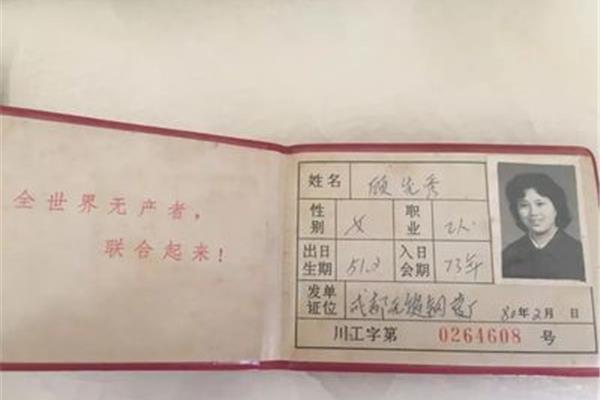 全世界无产者，
联合起来！
姓名 顾先秀
性别 女 职业 工人
出生日期 51.3 入会日期 73年
发证单位 成都无缝钢管厂 80年2月 日
川工字第 0264608 号